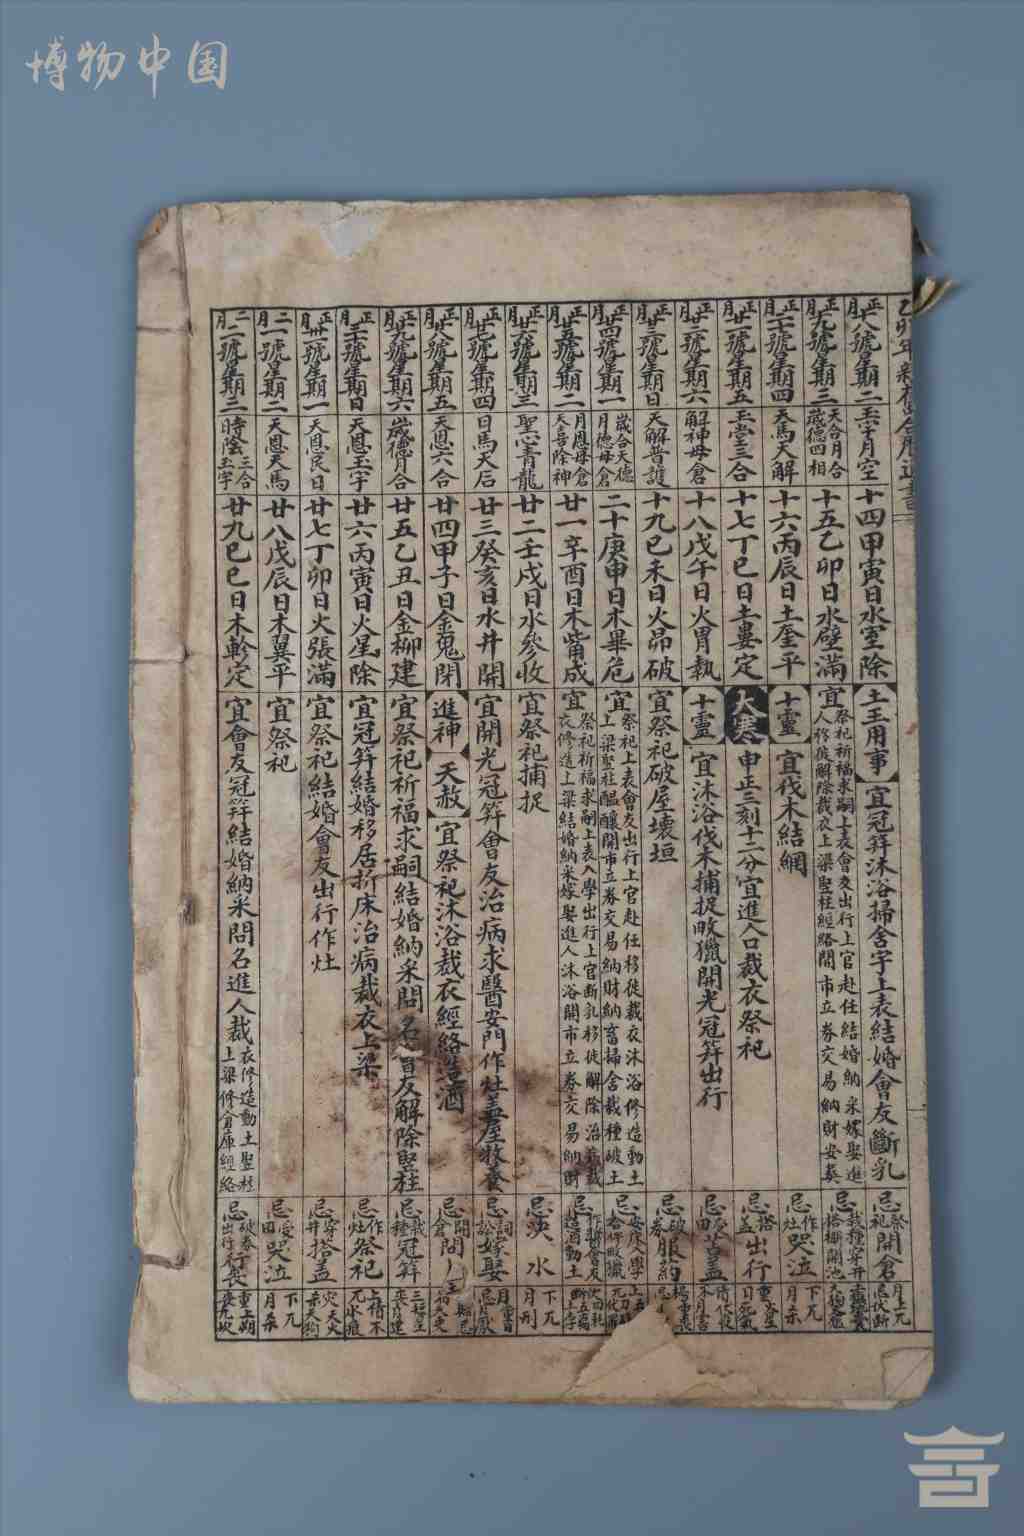 博物中国
正月十八號星期二
玉宇月空
十四甲寅日水室除
土王用事
宜冠笄沐浴掃舍宇上表結婚會友斷乳
忌祭祀開倉
正月十九號星期三
天合月合
歲德四相
十五乙卯日水壁滿
宜祭祀祈福求嗣上表會友出行上官赴任結婚納采嫁娶進
人移徙解除裁衣上梁竪柱經絡開市立券交易納財安葬
忌栽種穿井
正月二十號星期四
天馬天解
十六丙辰日土奎平
十靈
宜伐木結網
忌作灶哭泣
下兀
月杀
正月廿一號星期五
玉堂三合
十七丁巳日土婁定
大寒
申正三刻十二分宜進人口裁衣祭祀
忌搭蓋出行
正月廿二號星期六
解神母倉
十八戊午日火胃執
十靈
宜沐浴伐木捕捉畋獵開光冠笄出行
正月廿三號星期日
天解普護
十九己未日火昴破
宜祭祀破屋壞垣
忌破券服药
正月廿四號星期一
歲合天德
月德母倉
二十庚申日木畢危
宜祭祀上表會友出行上官赴任移徙裁衣沐浴修造動土
上梁竪柱醖釀開市立券交易納財納畜掃舍栽種破土
忌安床入學
正月廿五號星期二
月恩母倉
天喜除神
廿一辛酉日木觜成
宜祭祀祈福求嗣上表入學出行上官断乳移徙解除治病裁
衣修造上梁結婚納采嫁娶進人沐浴開市立券交易納財
正月廿六號星期三
聖心青龍
廿二壬戌日水參收
宜祭祀捕捉
下兀
月刑
正月廿七號星期四
日馬天后
廿三癸亥日水井開
宜開光冠笄會友治病求醫安門作灶蓋屋教養
忌詞訟嫁娶
正月廿八號星期五
天恩六合
廿四甲子日金鬼閉
進神
天赦
宜祭祀沐浴裁衣經絡造酒
正月廿九號星期六
歲德月合
廿五乙丑日金柳建
宜祭祀祈福求嗣結婚納采問名會友解除竪柱
忌栽種冠笄
正月三十號星期日
天恩玉宇
廿六丙寅日火星除
宜冠笄結婚移居折床治病裁衣上梁
忌作灶祭祀
正月卅一號星期一
天恩民日
廿七丁卯日火張滿
宜祭祀結婚會友出行作灶
忌穿井搭蓋
二月一號星期二
天恩天馬
廿八戊辰日木翼平
宜祭祀
忌受田哭泣
下兀
月杀
二月二號星期三
時陰三合
日玉宇
廿九己巳日木軫定
宜會友冠笄結婚納采問名進人裁衣修造動土竪柱
上梁修倉庫經絡
忌破券出行行喪